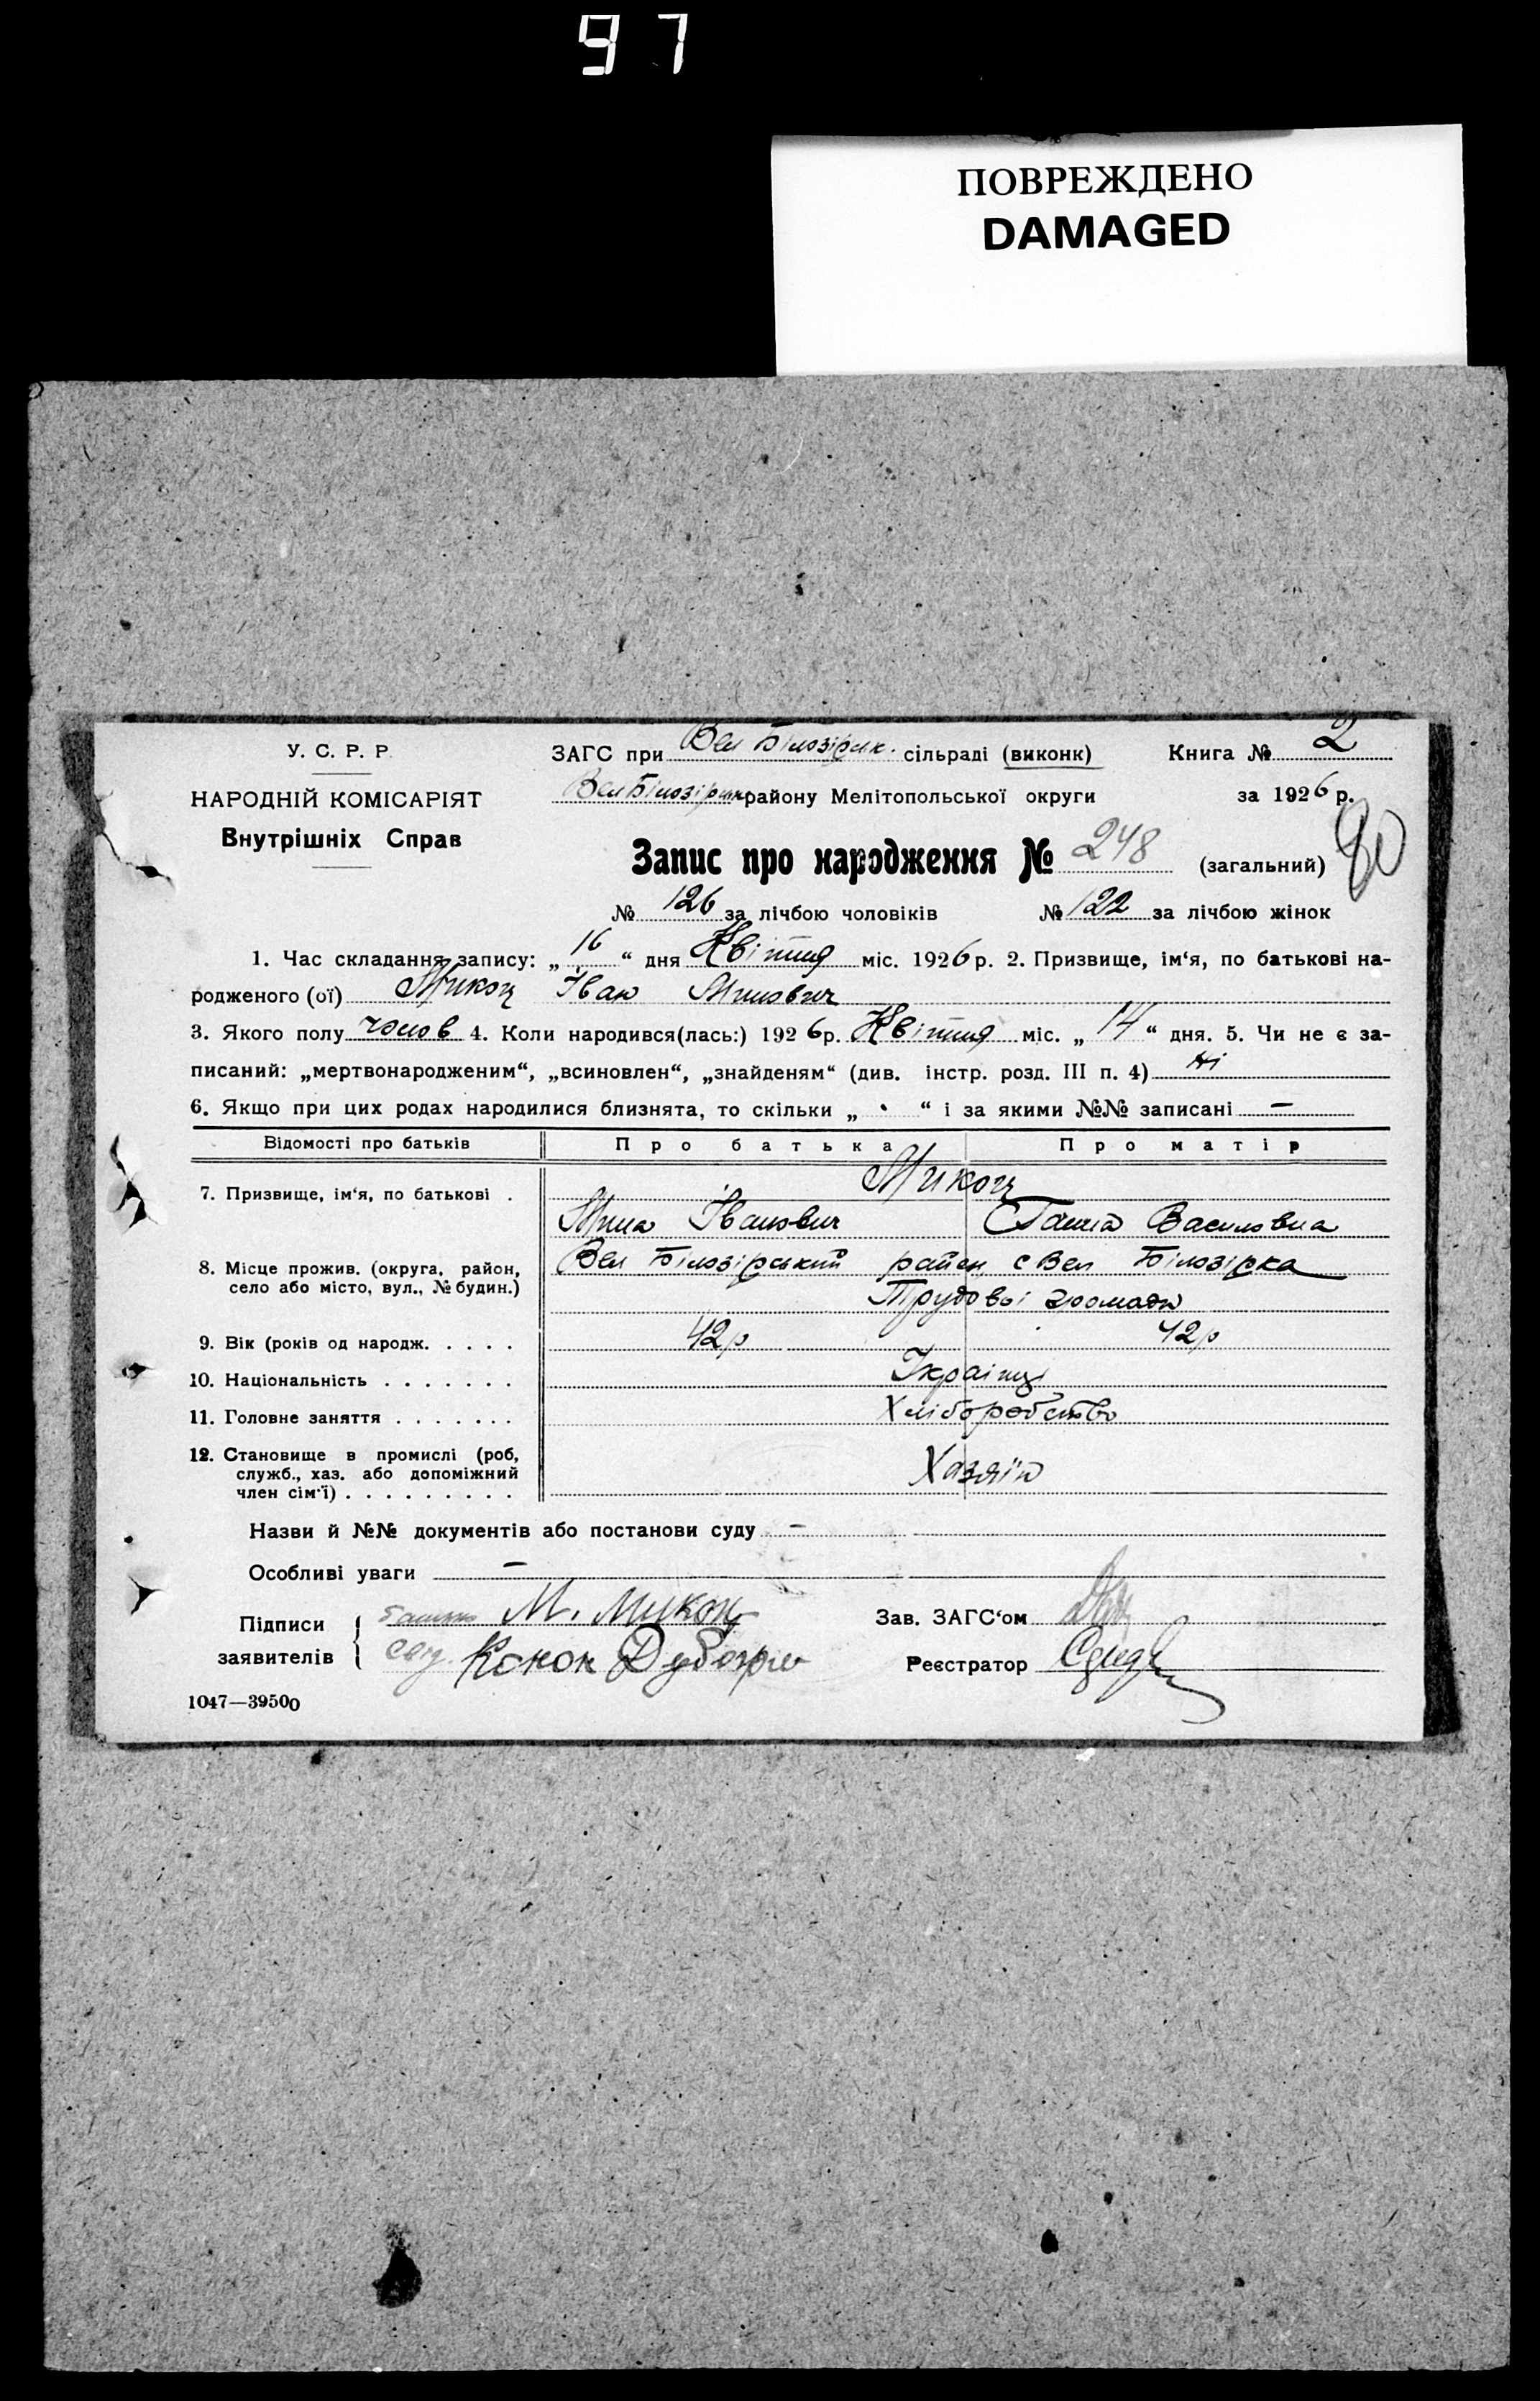 97
ПОВРЕЖДЕНО
DAMAGED
У. С. Р. Р.
НАРОДНІЙ КОМІСАРІЯТ
Внутрішніх Справ
ЗАГС при Вел Білозірськ. сільраді (виконк) Книга № 2
Вел Білозірськ району Мелітопольської округи за 1926 р.
80
Запис про народження № 248 (загальний)
№ 126 за лічбою чоловіків № 122 за лічбою жінок
1. Час складання запису: „16“ дня Квітня міс. 1926 р. 2. Призвище, ім‘я, по батькові на-
родженого (ої) Микоц Іван Минович
3. Якого полу чолов 4. Коли народився(лась:) 1926 р. Квітня міс. „14“ дня. 5. Чи не є за-
писаний: „мертвонародженим“, „всиновлен“, „знайденям“ (див. інстр. розд. III п. 4) Ні
6. Якщо при цих родах народилися близнята, то скільки „ “ і за якими №№ записані —
Відомості про батьків Про батька Про матір
7. Призвище, ім‘я, по батькові . Микоц
Мина Іванович Ганна Василовна
8. Місце прожив. (округа, район, село або місто, вул., № будин.) Вел Білозірський район, с Вел Білозірка
Трудової громади
9. Вік (років од народж. . . . . 42 р 42 р
10. Національність . . . . . . . Українці
11. Головне заняття . . . . . . . Хліборобство
12. Становище в промислі (роб,
служб., хаз. або допоміжний
член сім‘ї) . . . . . . . . . Хазяїн
Назви й №№ документів або постанови суду —
Особливі уваги —
Підписи батько М. Микоц Зав. ЗАГС‘ом
заявителів свід. Конон Реєстратор
1047—39500